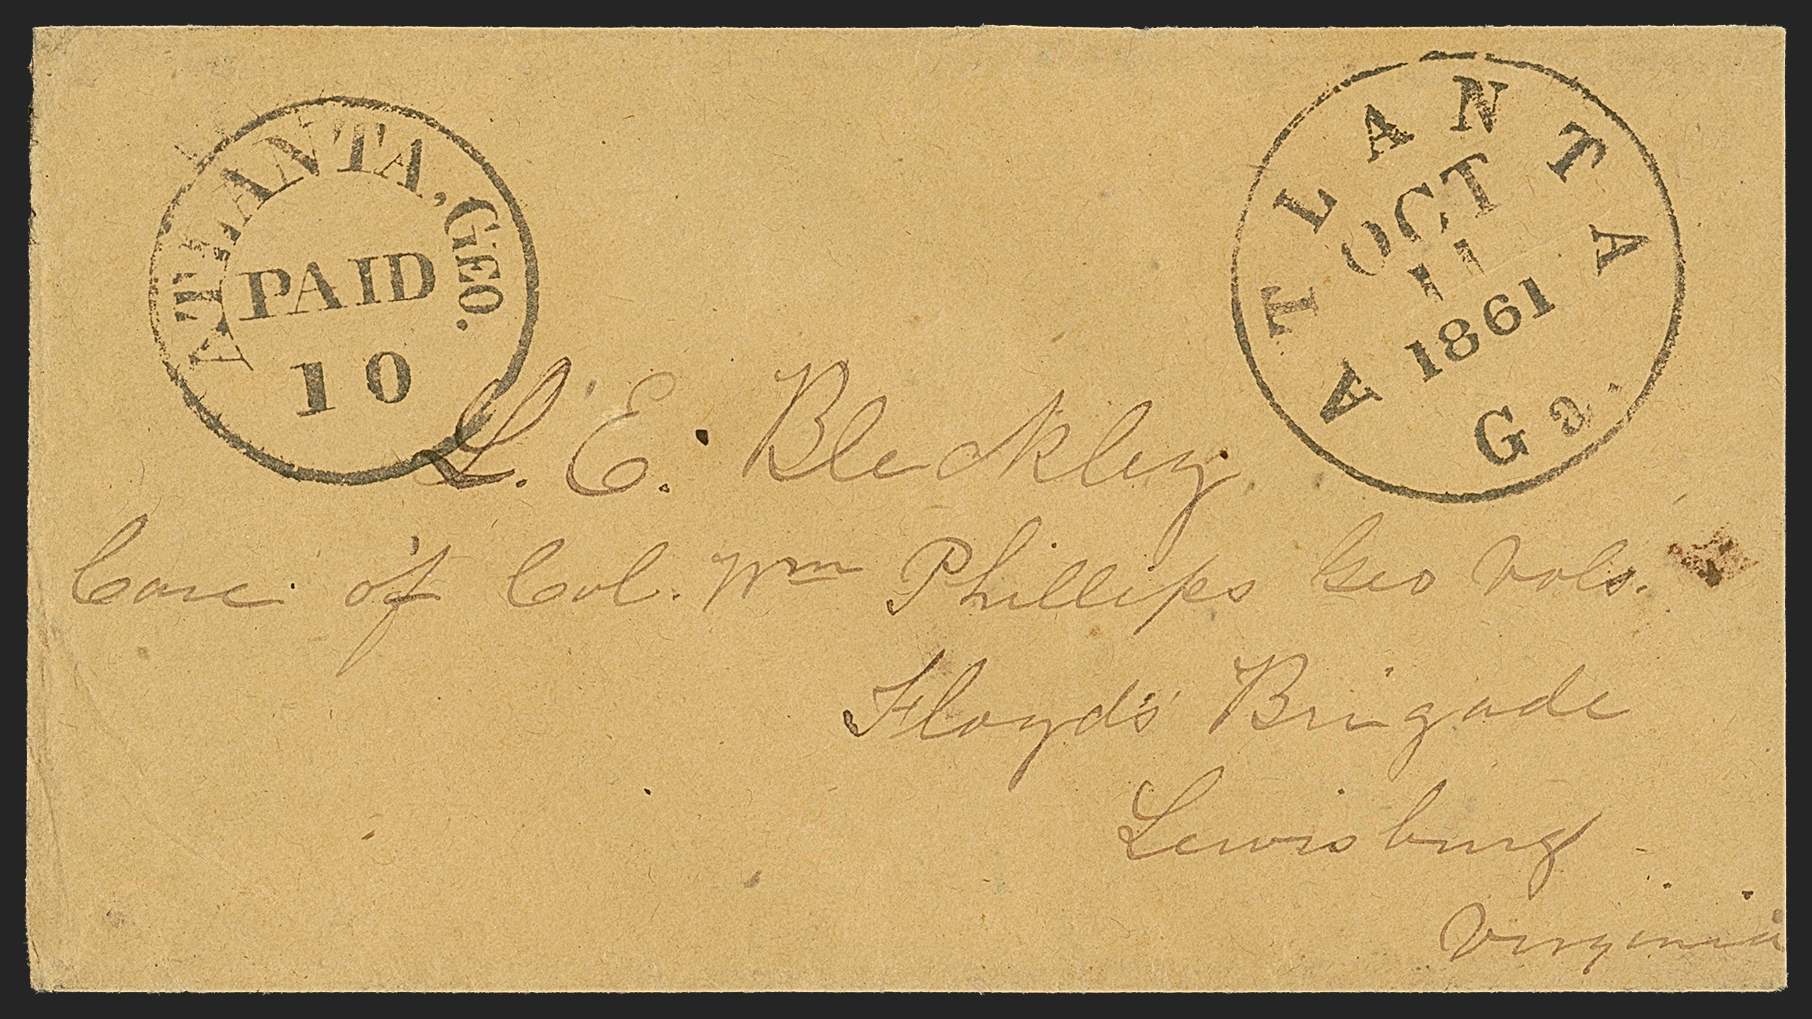 ATLANTA, GEO.
PAID
10
ATLANTA Ga.
OCT
11
1861
L. E. Bleckley
Care of Col. Wm Phillips Geo Vols.
Floyd's Brigade
Lewisburg
Virginia